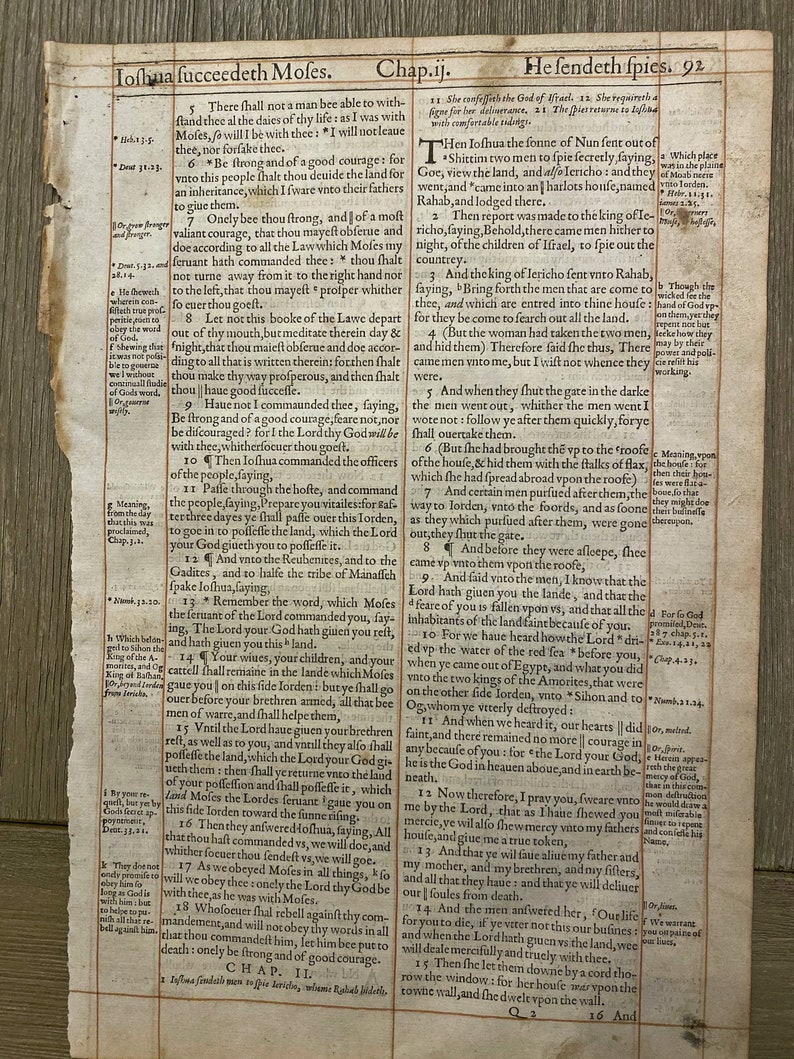 Ioſhua ſucceedeth Moſes. Chap.ij. He ſendeth ſpies. 92
* Heb. 13.5.
* Deut 31.23.
|| Or, grow ſtronger
and ſtronger.
* Deut. 5.32. and
28.14.
e He ſheweth
wherein con-
ſiſteth true proſ-
peritie, euen to
obey the word
of God.
f Shewing that
it was not poſſi-
ble to gouerne
well without
continuall ſtudie
of Gods word.
|| Or, gouerne
wiſely.
g Meaning,
from the day
that this was
proclaimed,
Chap. 3.2.
* Numb. 32.20.
h Which belon-
ged to Sihon the
King of the A-
morites, and Og
King of Baſhan.
|| Or, beyond Iorden
from Iericho.
i By your re-
queſt, but yet by
Gods ſecret ap-
poyntment,
Deut. 33.21.
k They doe not
onely promiſe to
obey him ſo
long as God is
with him: but
to helpe to pu-
niſh all that re-
bell againſt him.
5 There ſhall not a man bee able to with-
ſtand thee al the daies of thy life: as I was with
Moſes, ſo will I be with thee: * I will not leaue
thee, nor forſake thee.
6 *Be ſtrong and of a good courage: for
vnto this people ſhalt thou deuide the land for
an inheritance, which I ſware vnto their fathers
to giue them.
7 Onely bee thou ſtrong, and || of a moſt
valiant courage, that thou mayeſt obſerue and
doe according to all the Law which Moſes my
ſeruant hath commanded thee: * thou ſhalt
not turne away from it to the right hand nor
to the left, that thou mayeſt e proſper whither
ſo euer thou goeſt.
8 Let not this booke of the Lawe depart
out of thy mouth, but meditate therein day &
f night, that thou maieſt obſerue and doe accor-
ding to all that is written therein: for then ſhalt
thou make thy way proſperous, and then ſhalt
thou || haue good ſucceſſe.
9 Haue not I commaunded thee, ſaying,
Be ſtrong and of a good courage, feare not, nor
be diſcouraged? for I the Lord thy God will be
with thee, whitherſoeuer thou goeſt.
10 ¶ Then Ioſhua commanded the officers
of the people, ſaying,
11 Paſſe through the hoſte, and command
the people, ſaying, Prepare you vitailes: for g af-
ter three dayes ye ſhall paſſe ouer this Iorden,
to goe in to poſſeſſe the land, which the Lord
your God giueth you to poſſeſſe it.
12 ¶ And vnto the Reubenites, and to the
Gadites, and to halfe the tribe of Manaſſeh
ſpake Ioſhua, ſaying,
13 * Remember the word, which Moſes
the ſeruant of the Lord commanded you, ſay-
ing, The Lord your God hath giuen you reſt,
and hath giuen you this h land.
14 ¶ Your wiues, your children, and your
cattell ſhall remaine in the lande which Moſes
gaue you || on this ſide Iorden: but ye ſhall go
ouer before your brethren armed, all that bee
men of warre, and ſhall helpe them,
15 Vntill the Lord haue giuen your brethren
reſt, as well as to you, and vntill they alſo ſhall
poſſeſſe the land, which the Lord your God gi-
ueth them: then ſhall ye returne vnto the land
of your poſſeſſion and ſhall poſſeſſe it, which
land Moſes the Lordes ſeruant i gaue you on
this ſide Iorden toward the ſunne riſing.
16 Then they anſwered Ioſhua, ſaying, All
that thou haſt commanded vs, we will doe, and
whither ſoeuer thou ſendeſt vs, we will goe.
17 As we obeyed Moſes in all things, k ſo
will we obey thee: onely the Lord thy God be
with thee, as he was with Moſes.
18 Whoſoeuer ſhal rebell againſt thy com-
mandement, and will not obey thy words in all
that thou commandeſt him, let him bee put to
death: onely be ſtrong and of good courage.
CHAP. II.
1 Ioſhua ſendeth men to ſpie Iericho, whome Rahab hideth.
11 She confeſſeth the God of Iſrael. 12 She requireth a
ſigne for her deliuerance. 21 The ſpies returne to Ioſhua
with comfortable tidings.
THen Ioſhua the ſonne of Nun ſent out of
a Shittim two men to ſpie ſecretly, ſaying,
Goe, view the land, and alſo Iericho: and they
went, and *came into an || harlots houſe, named
Rahab, and lodged there.
2 Then report was made to the king of Ie-
richo, ſaying, Behold, there came men hither to
night, of the children of Iſrael, to ſpie out the
countrey.
3 And the king of Iericho ſent vnto Rahab,
ſaying, b Bring forth the men that are come to
thee, and which are entred into thine houſe:
for they be come to ſearch out all the land.
4 (But the woman had taken the two men,
and hid them) Therefore ſaid ſhe thus, There
came men vnto me, but I wiſt not whence they
were.
5 And when they ſhut the gate in the darke
the men went out, whither the men went I
wote not: follow ye after them quickly, for ye
ſhall ouertake them.
6 (But ſhe had brought thē vp to the c roofe
of the houſe, & hid them with the ſtalks of flax,
which ſhe had ſpread abroad vpon the roofe)
7 And certain men purſued after them, the
way to Iorden, vnto the foords, and as ſoone
as they which purſued after them, were gone
out, they ſhut the gate.
8 ¶ And before they were aſleepe, ſhee
came vp vnto them vpon the roofe,
9 And ſaid vnto the men, I know that the
Lord hath giuen you the lande, and that the
d feare of you is fallen vpon vs, and that all the
inhabitants of the land faint becauſe of you.
10 For we haue heard how the Lord * dri-
ed vp the water of the red ſea * before you,
when ye came out of Egypt, and what you did
vnto the two kings of the Amorites, that were
on the other ſide Iorden, vnto * Sihon and to
Og, whom ye vtterly deſtroyed:
11 And when we heard it, our hearts || did
faint, and there remained no more || courage in
any becauſe of you: for e the Lord your God,
he is the God in heauen aboue, and in earth be-
neath.
12 Now therefore, I pray you, ſweare vnto
me by the Lord, that as I haue ſhewed you
mercie, ye wil alſo ſhew mercy vnto my fathers
houſe, and giue me a true token,
13 And that ye wil ſaue aliue my father and
my mother, and my brethren, and my ſiſters,
and all that they haue: and that ye will deliuer
our || ſoules from death.
14 And the men anſwered her, f Our life
for you to die, if ye vtter not this our buſines:
and when the Lord hath giuen vs the land, wee
will deale mercifully and truely with thee.
15 Then ſhe let them downe by a cord tho-
row the window: for her houſe was vpon the
towne wall, and ſhe dwelt vpon the wall.
Q 2 16 And
a Which place
was in the plaine
of Moab neere
vnto Iorden.
* Hebr. 11.31.
iames 2.25.
houſe, or hoſteſſe,
b Though the
wicked ſee the
hand of God vp-
on them, yet they
repent not but
ſeeke how they
may by their
power and poli-
cie reſiſt his
working.
c Meaning, vpon
the houſe: for
then their hou-
ſes were flat a-
boue, ſo that
they might doe
their buſineſſe
thereupon.
d For ſo God
promiſed, Deut.
28 7 chap. 5.1.
* Exo. 14,21,22
* Chap. 4.23.
* Numb. 21.24.
|| Or, melted.
|| Or, ſpirit.
e Herein appea-
reth the great
mercy of God,
that in this com-
mon deſtruction
he would draw a
moſt miſerable
ſinner to repent
and confeſſe his
Name.
|| Or, liues.
f We warrant
you on paine of
our liues,